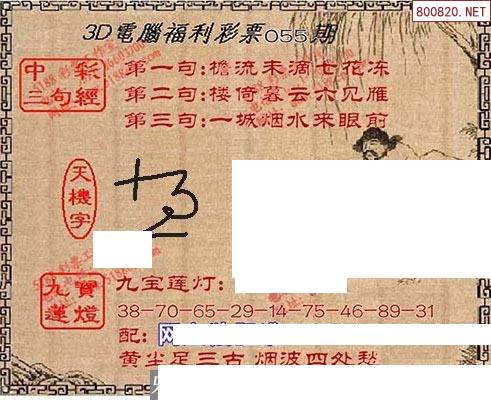 800820.NET
3D電腦福利彩票055期
中彩
三句經
第一句:檐流未滴七花冻
第二句:楼倚暮云六见雁
第三句:一城烟水来眼前
天機字
九寶
蓮燈
九宝莲灯:
38-70-65-29-14-75-46-89-31
配:
黄尘足三古 烟波四处愁